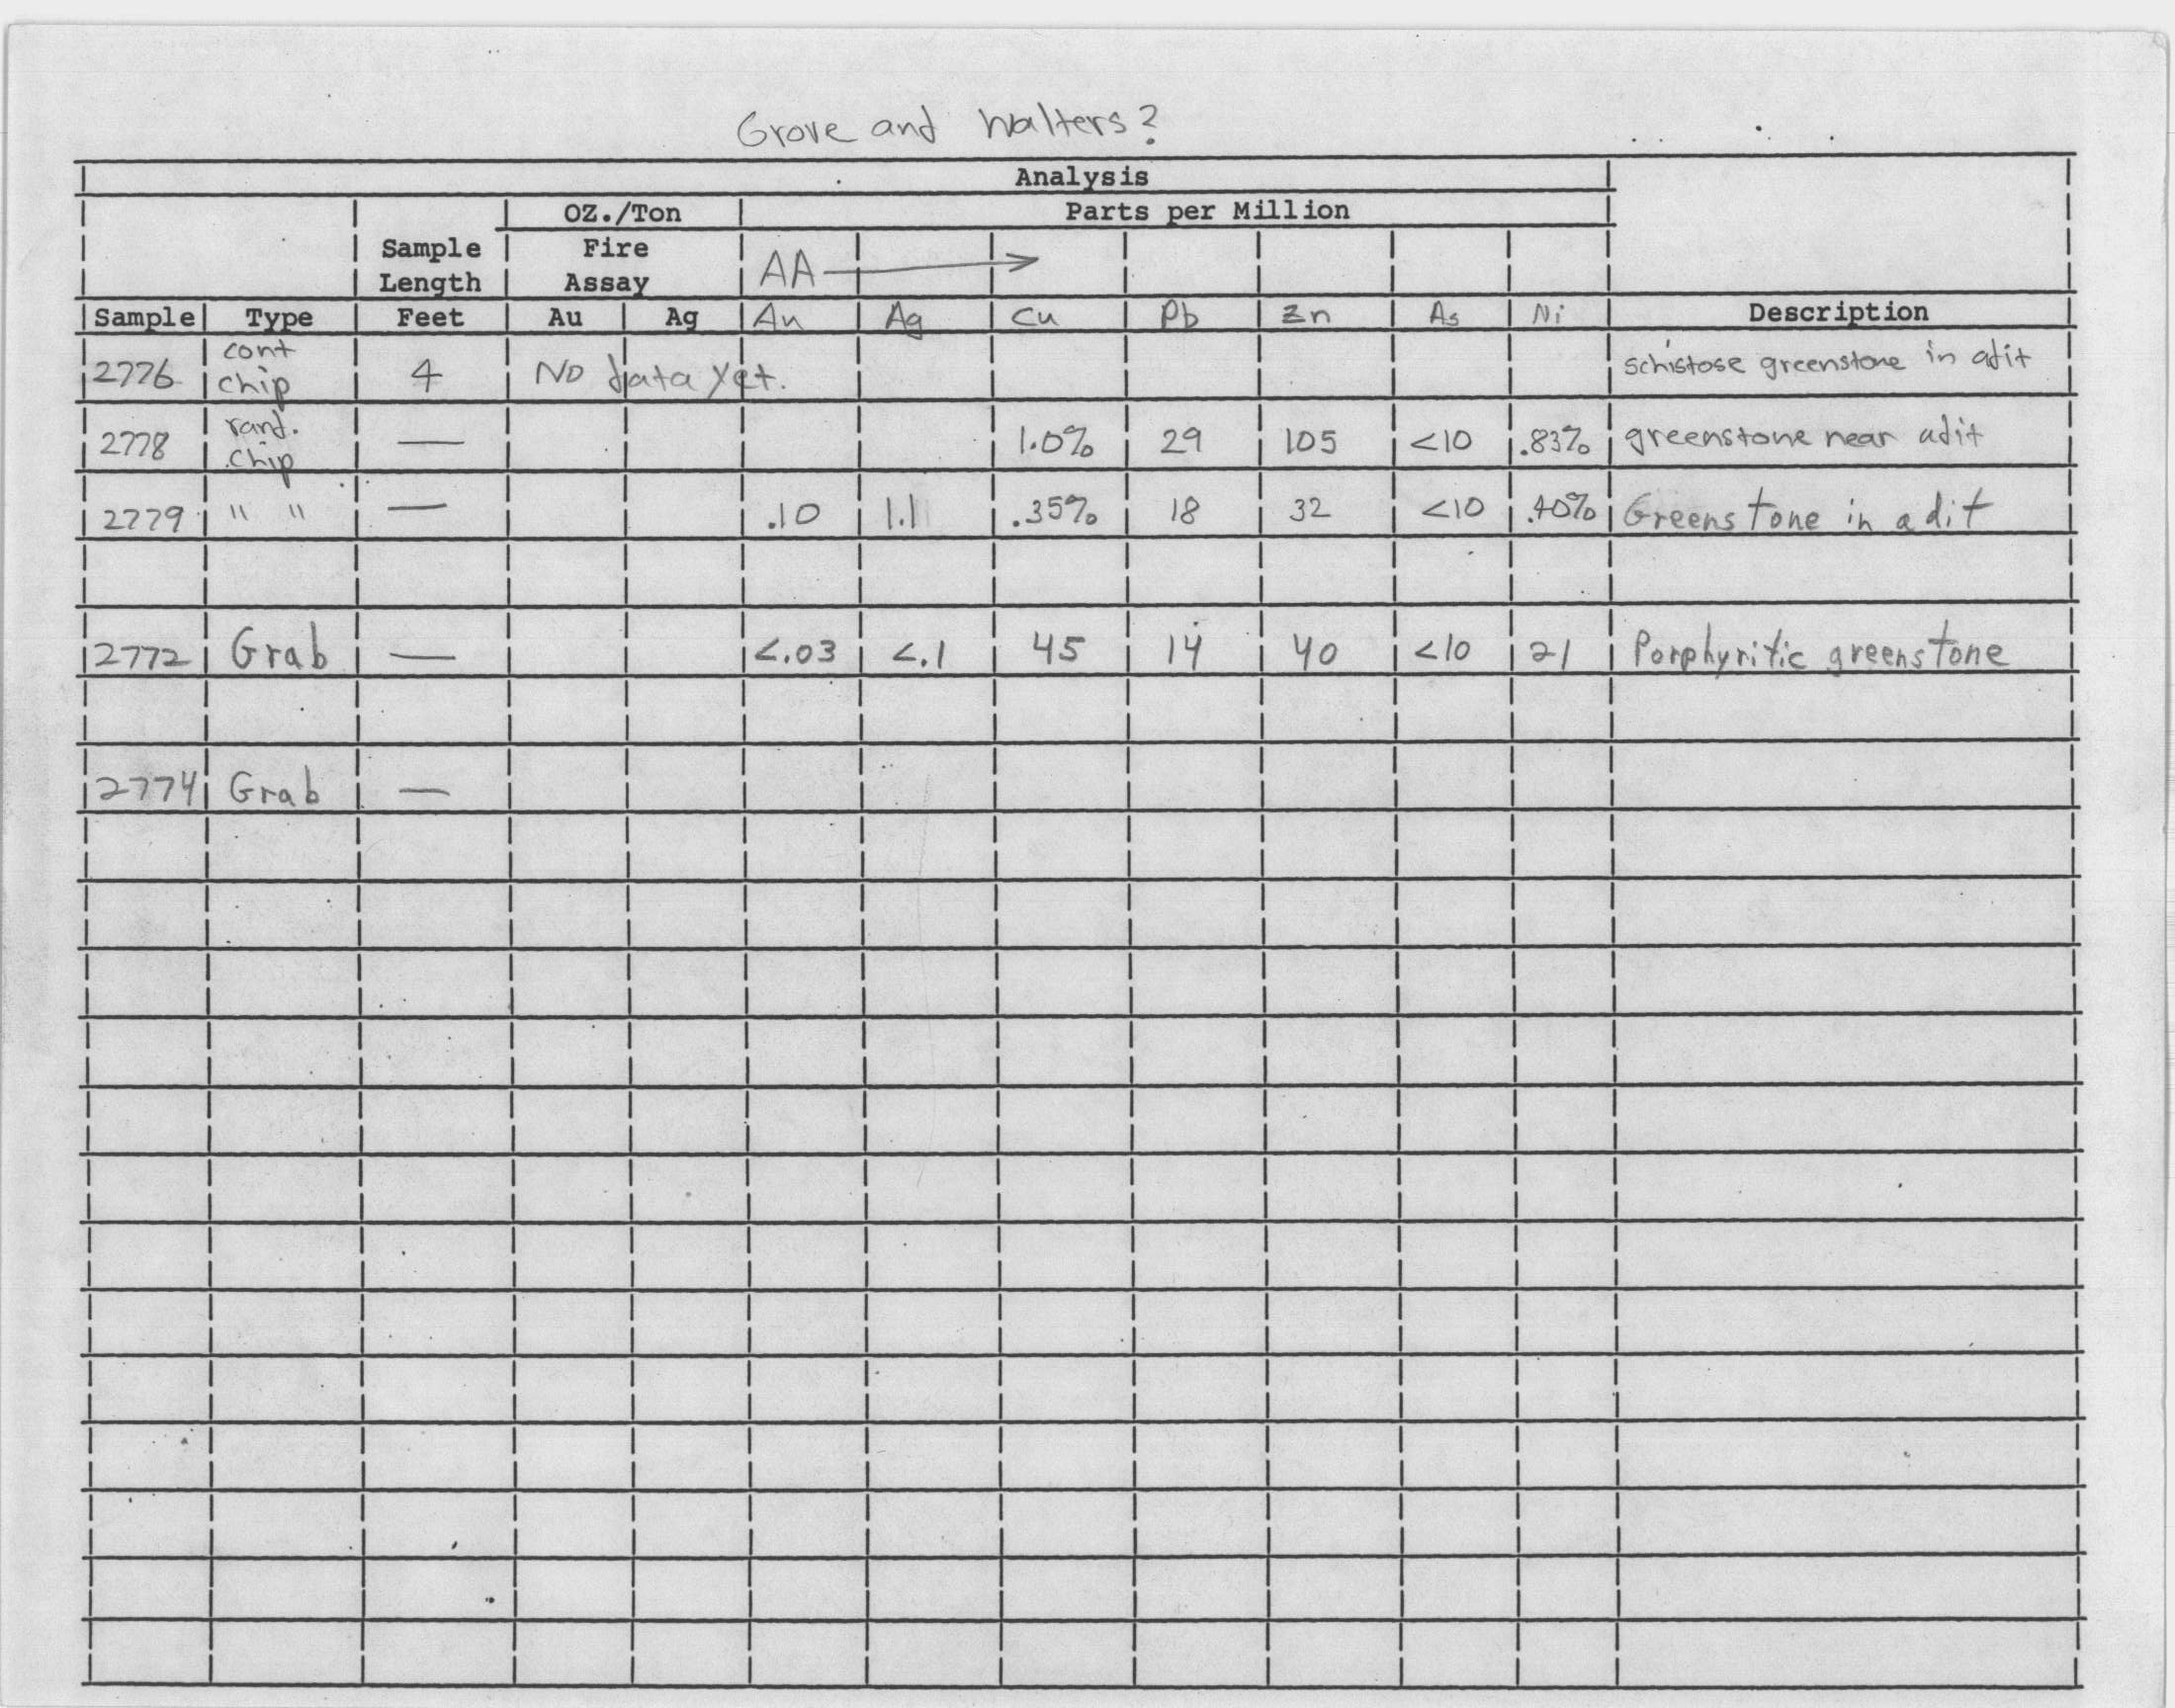 Grove and Walters?
Analysis
OZ./Ton Parts per Million
Sample Fire
Length Assay AA
Sample Type Feet Au Ag Au Ag Cu Pb Zn As Ni Description
2776 cont chip 4 No data yet. schistose greenstone in adit
2778 rand. chip — 1.0% 29 105 <10 .83% greenstone near adit
2779 " " — .10 1.1 .35% 18 32 <10 .40% Greenstone in adit
2772 Grab — <.03 <.1 45 14 40 <10 21 Porphyritic greenstone
2774 Grab —